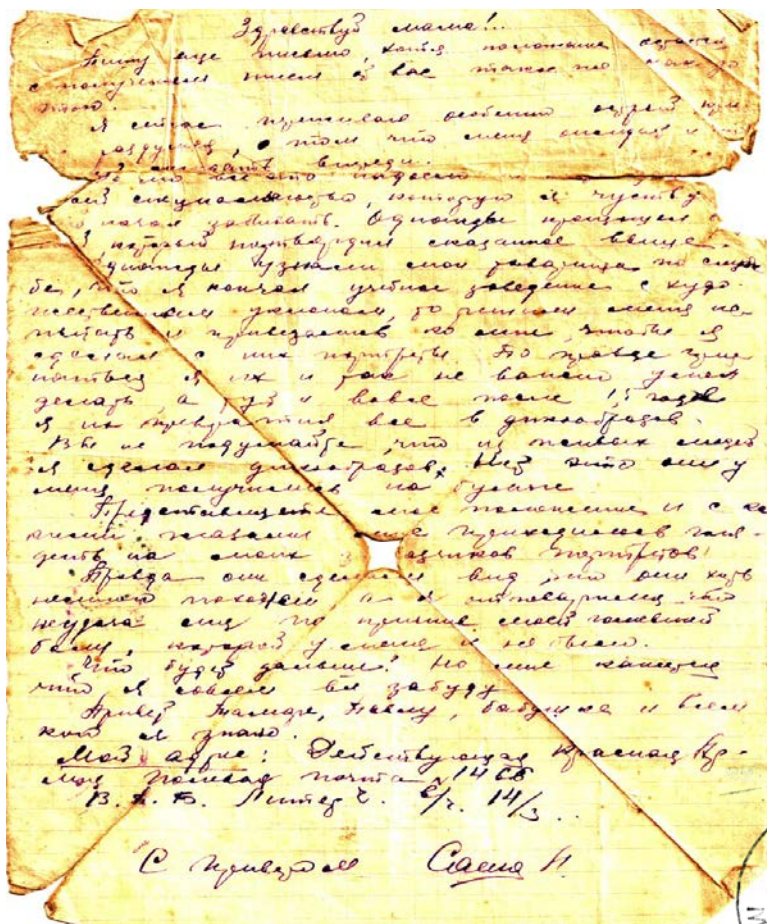 Здравствуй мама!..
Пишу еще письмо, хотя положение
с получением писем от вас такое же как до
этого.
Я сейчас переживаю особенно острый
раздумья, о том что меня ожидает и
ожидать впереди.
специальностью, которую я чувству
начал забывать. Однажды произошел
который подтвердил сказанное выше.
Однажды узнали мои товарищи по служ
бе, что я кончал учебное заведение с худо
жественным уклоном, то решили меня ис
пытать и привязались ко мне, чтобы я
сделал с них портреты. По правде
я их и так не важно умел
делать, а тут и вовсе после 1,5 годов
я их превратил все в дикообразов.
Вы не подумайте, что из живых людей
я сделал дикообразов, Нет это они у
меня получились на бумаге
Представляете мое положение и с ка
кими глазами мне приходилось гля-
деть на моих заказчиков портретов!
Правда они сделали вид, что они хоть
немного похожи а я отговорился что
неудача по причине моей головной
боли, которой у меня и не было.
Что будет дальше? Но мне кажется
что я совсем все забуду
Привет Тамаре, Павлу, бабушке и всем
кого я знаю.
Мой адрес: Действующая Красная Ар-
мия Полевая почта 1468
Литер 14/3
С приветом Саша Н.